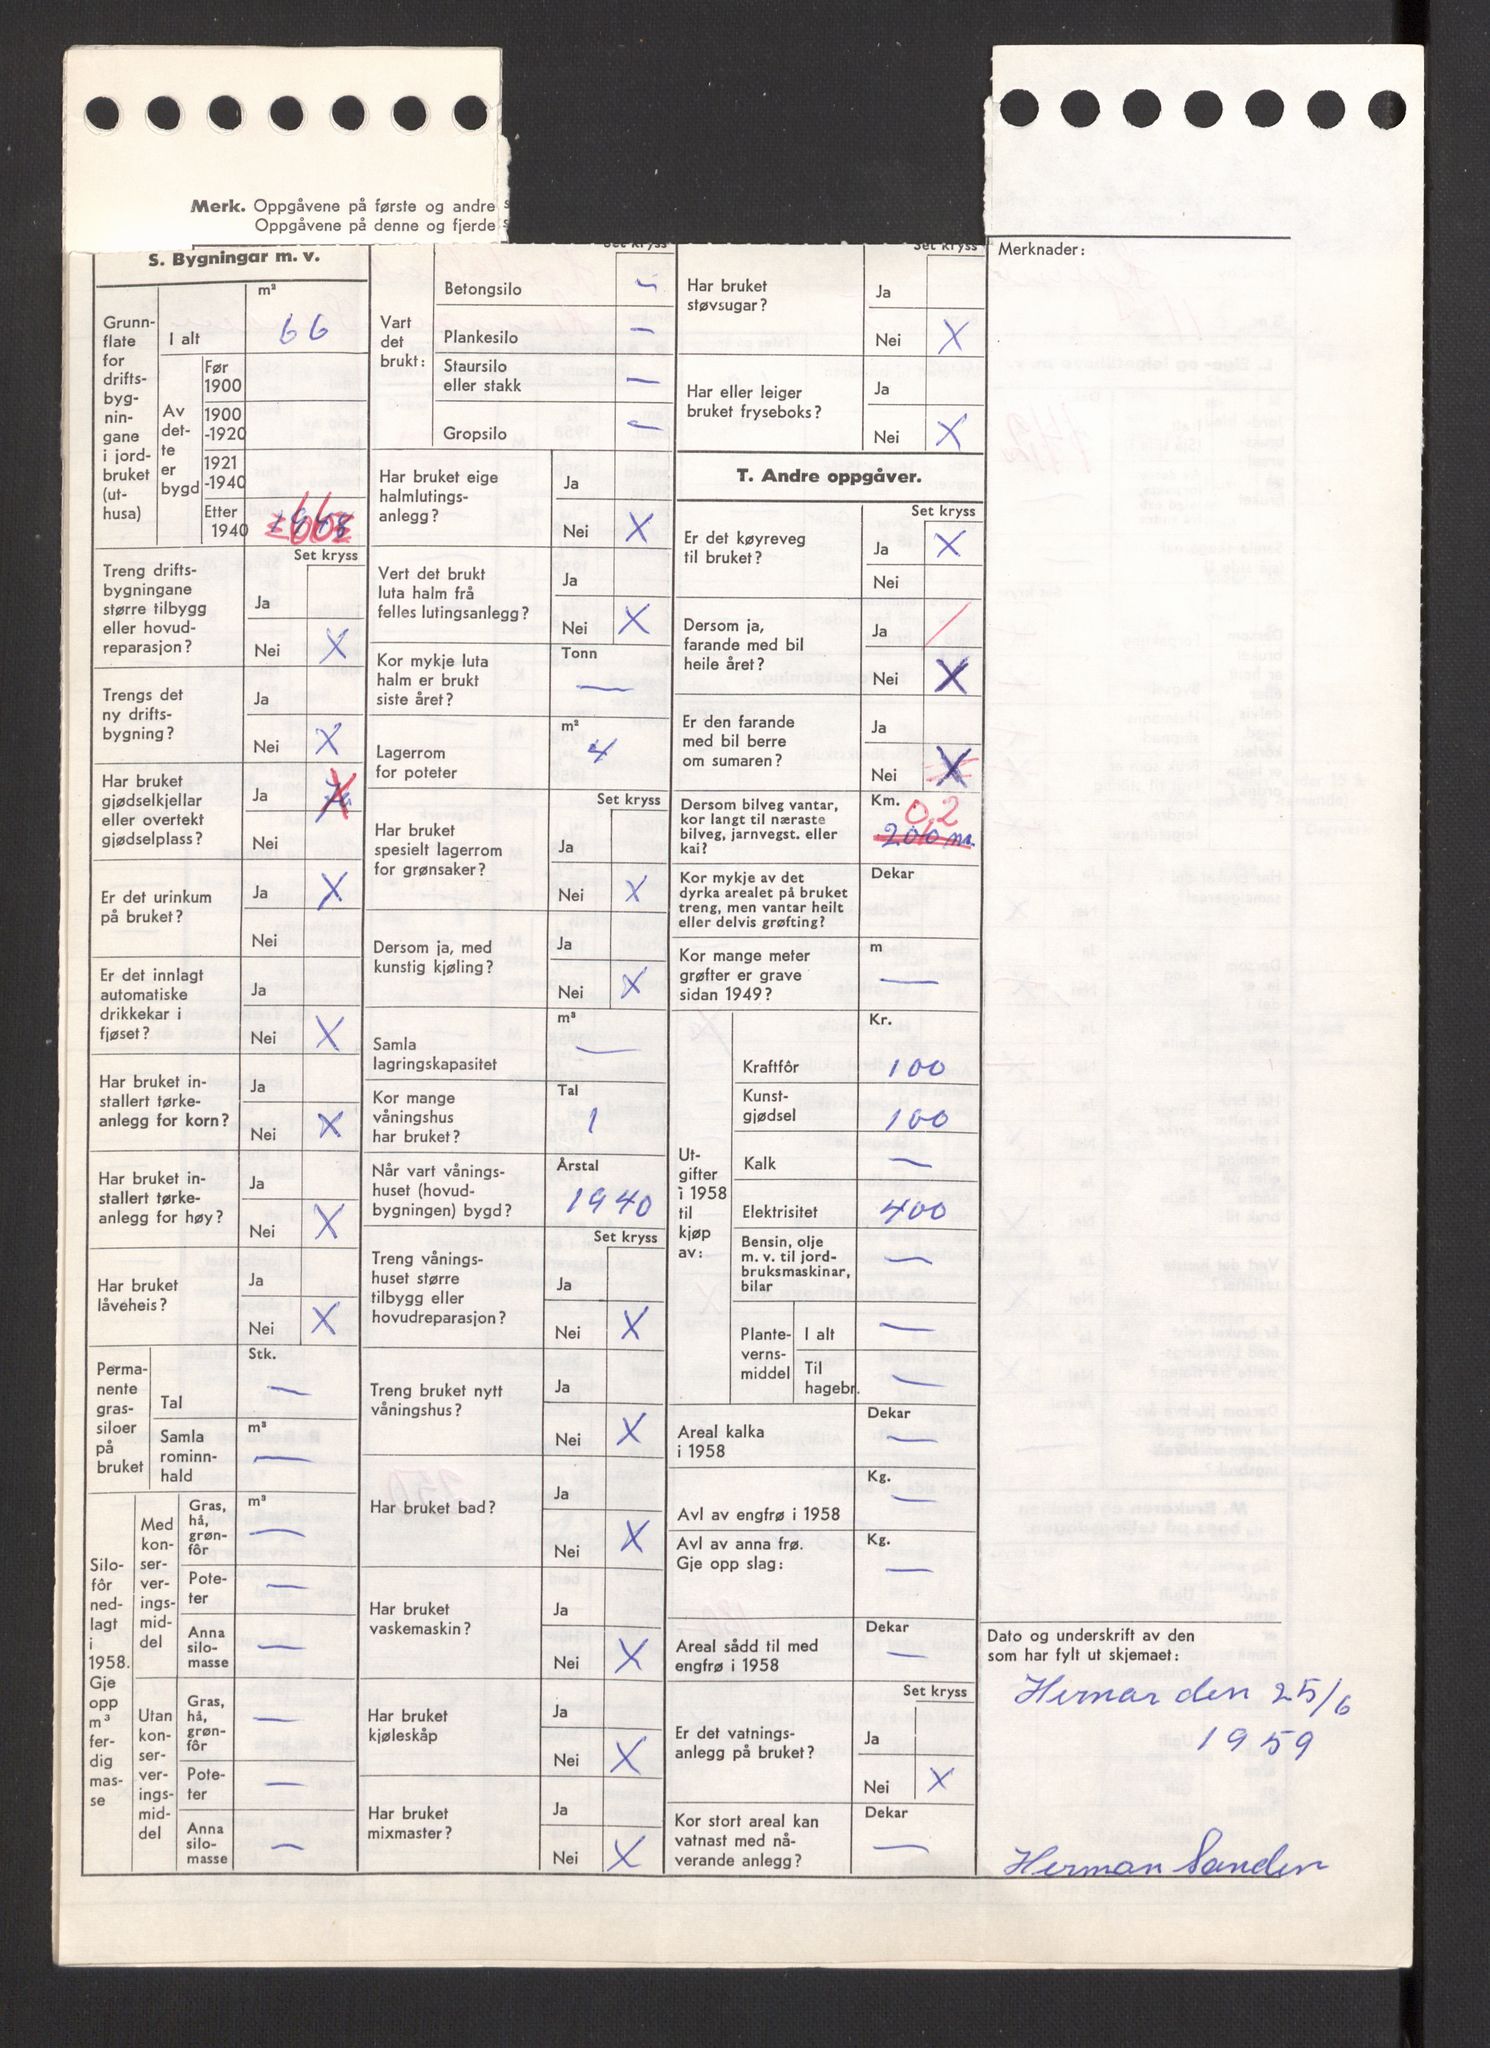 Merk. Oppgåvene på første og andre s
Oppgåvene på denne og fjerde s
S. Bygningar m. v.
Grunn-
flate
for
drifts-
byg-
nin-
gane
i jord-
bruket
(ut-
husa)
m²
I alt 66
Av
det-
te
er
bygd
Før
1900
1900
-1920
1921
-1940
Etter
1940 66
Set kryss
Treng drifts-
bygningane
større tilbygg
eller hovud-
reparasjon?
Ja
Nei X
Trengs det
ny drifts-
bygning?
Ja
Nei X
Har bruket
gjødselkjellar
eller overtekt
gjødselplass?
Ja X
Nei
Er det urinkum
på bruket?
Ja X
Nei
Er det innlagt
automatiske
drikkekar i
fjøset?
Ja
Nei X
Har bruket in-
stallert tørke-
anlegg for korn?
Ja
Nei X
Har bruket in-
stallert tørke-
anlegg for høy?
Ja
Nei X
Har bruket
låveheis?
Ja
Nei X
Perma-
nente
gras-
siloer
på
bruket
Stk.
Tal —
m³
Samla
rominn-
hald —
Silo-
fôr
ned-
lagt
i
1958.
Gje
opp
m³
fer-
dig
mas-
se
Med
kon-
ser-
ver-
ings-
mid-
del
m³
Gras,
hå,
grøn-
fôr —
Pote-
ter —
Anna
silo-
masse —
Utan
kon-
ser-
ver-
ings-
mid-
del
Gras,
hå,
grøn-
fôr —
Pote-
ter —
Anna
silo-
masse —
Set kryss
Vart
det
brukt:
Betongsilo —
Plankesilo —
Staursilo
eller stakk —
Gropsilo —
Har bruket eige
halmlutings-
anlegg?
Ja
Nei X
Vert det brukt
luta halm frå
felles lutingsanlegg?
Ja
Nei X
Kor mykje luta
halm er brukt
siste året?
Tonn
—
Lagerrom
for poteter
m²
4
Set kryss
Har bruket
spesielt lagerrom
for grønsaker?
Ja
Nei X
Dersom ja, med
kunstig kjøling?
Ja
Nei X
Samla
lagringskapasitet
m³
—
Kor mange
våningshus
har bruket?
Tal
1
Når vart vånings-
huset (hovud-
bygningen) bygd?
Årstal
1940
Set kryss
Treng vånings-
huset større
tilbygg eller
hovudreparasjon?
Ja
Nei X
Treng bruket nytt
våningshus?
Ja
Nei X
Har bruket bad?
Ja
Nei X
Har bruket
vaskemaskin?
Ja
Nei X
Har bruket
kjøleskåp
Ja
Nei X
Har bruket
mixmaster?
Ja
Nei X
Set kryss
Har bruket
støvsugar?
Ja
Nei X
Har eller leiger
bruket fryseboks?
Ja
Nei X
T. Andre oppgåver.
Set kryss
Er det køyreveg
til bruket?
Ja X
Nei
Dersom ja,
farande med bil
heile året?
Ja /
Nei X
Er den farande
med bil berre
om sumaren?
Ja
Nei X
Dersom bilveg vantar,
kor langt til næraste
bilveg, jarnvegst. eller
kai?
Km.
0,2
200 m.
Kor mykje av det
dyrka arealet på bruket
treng, men vantar heilt
eller delvis grøfting?
Dekar
Kor mange meter
grøfter er grave
sidan 1949?
m
—
Ut-
gifter
i 1958
til
kjøp
av:
Kr.
Kraftfôr 100
Kunst-
gjødsel 100
Kalk —
Elektrisitet 400
Bensin, olje
m. v. til jord-
bruksmaskinar,
bilar —
Plante-
verns-
middel
I alt —
Til
hagebr. —
Areal kalka
i 1958
Dekar
—
Avl av engfrø i 1958
Kg.
—
Avl av anna frø.
Gje opp slag:
Kg.
—
Areal sådd til med
engfrø i 1958
Dekar
—
Set kryss
Er det vatnings-
anlegg på bruket?
Ja
Nei X
Kor stort areal kan
vatnast med nå-
verande anlegg?
Dekar
—
Merknader:
Dato og underskrift av den
som har fylt ut skjemaet:
Hernar den 25/6
1959
Herman Sanden